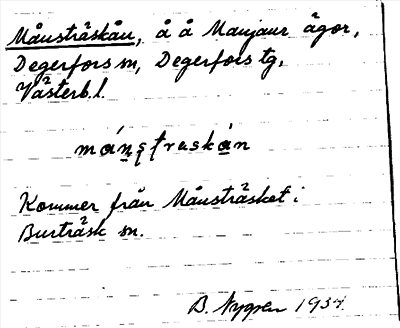 Månsträskån, å å Manjaur ägor,
Degerfors sn, Degerfors tg,
Västerb. l.
Kommer från Månsträsket i
Burträsk sn.
B. Nygren 1937.